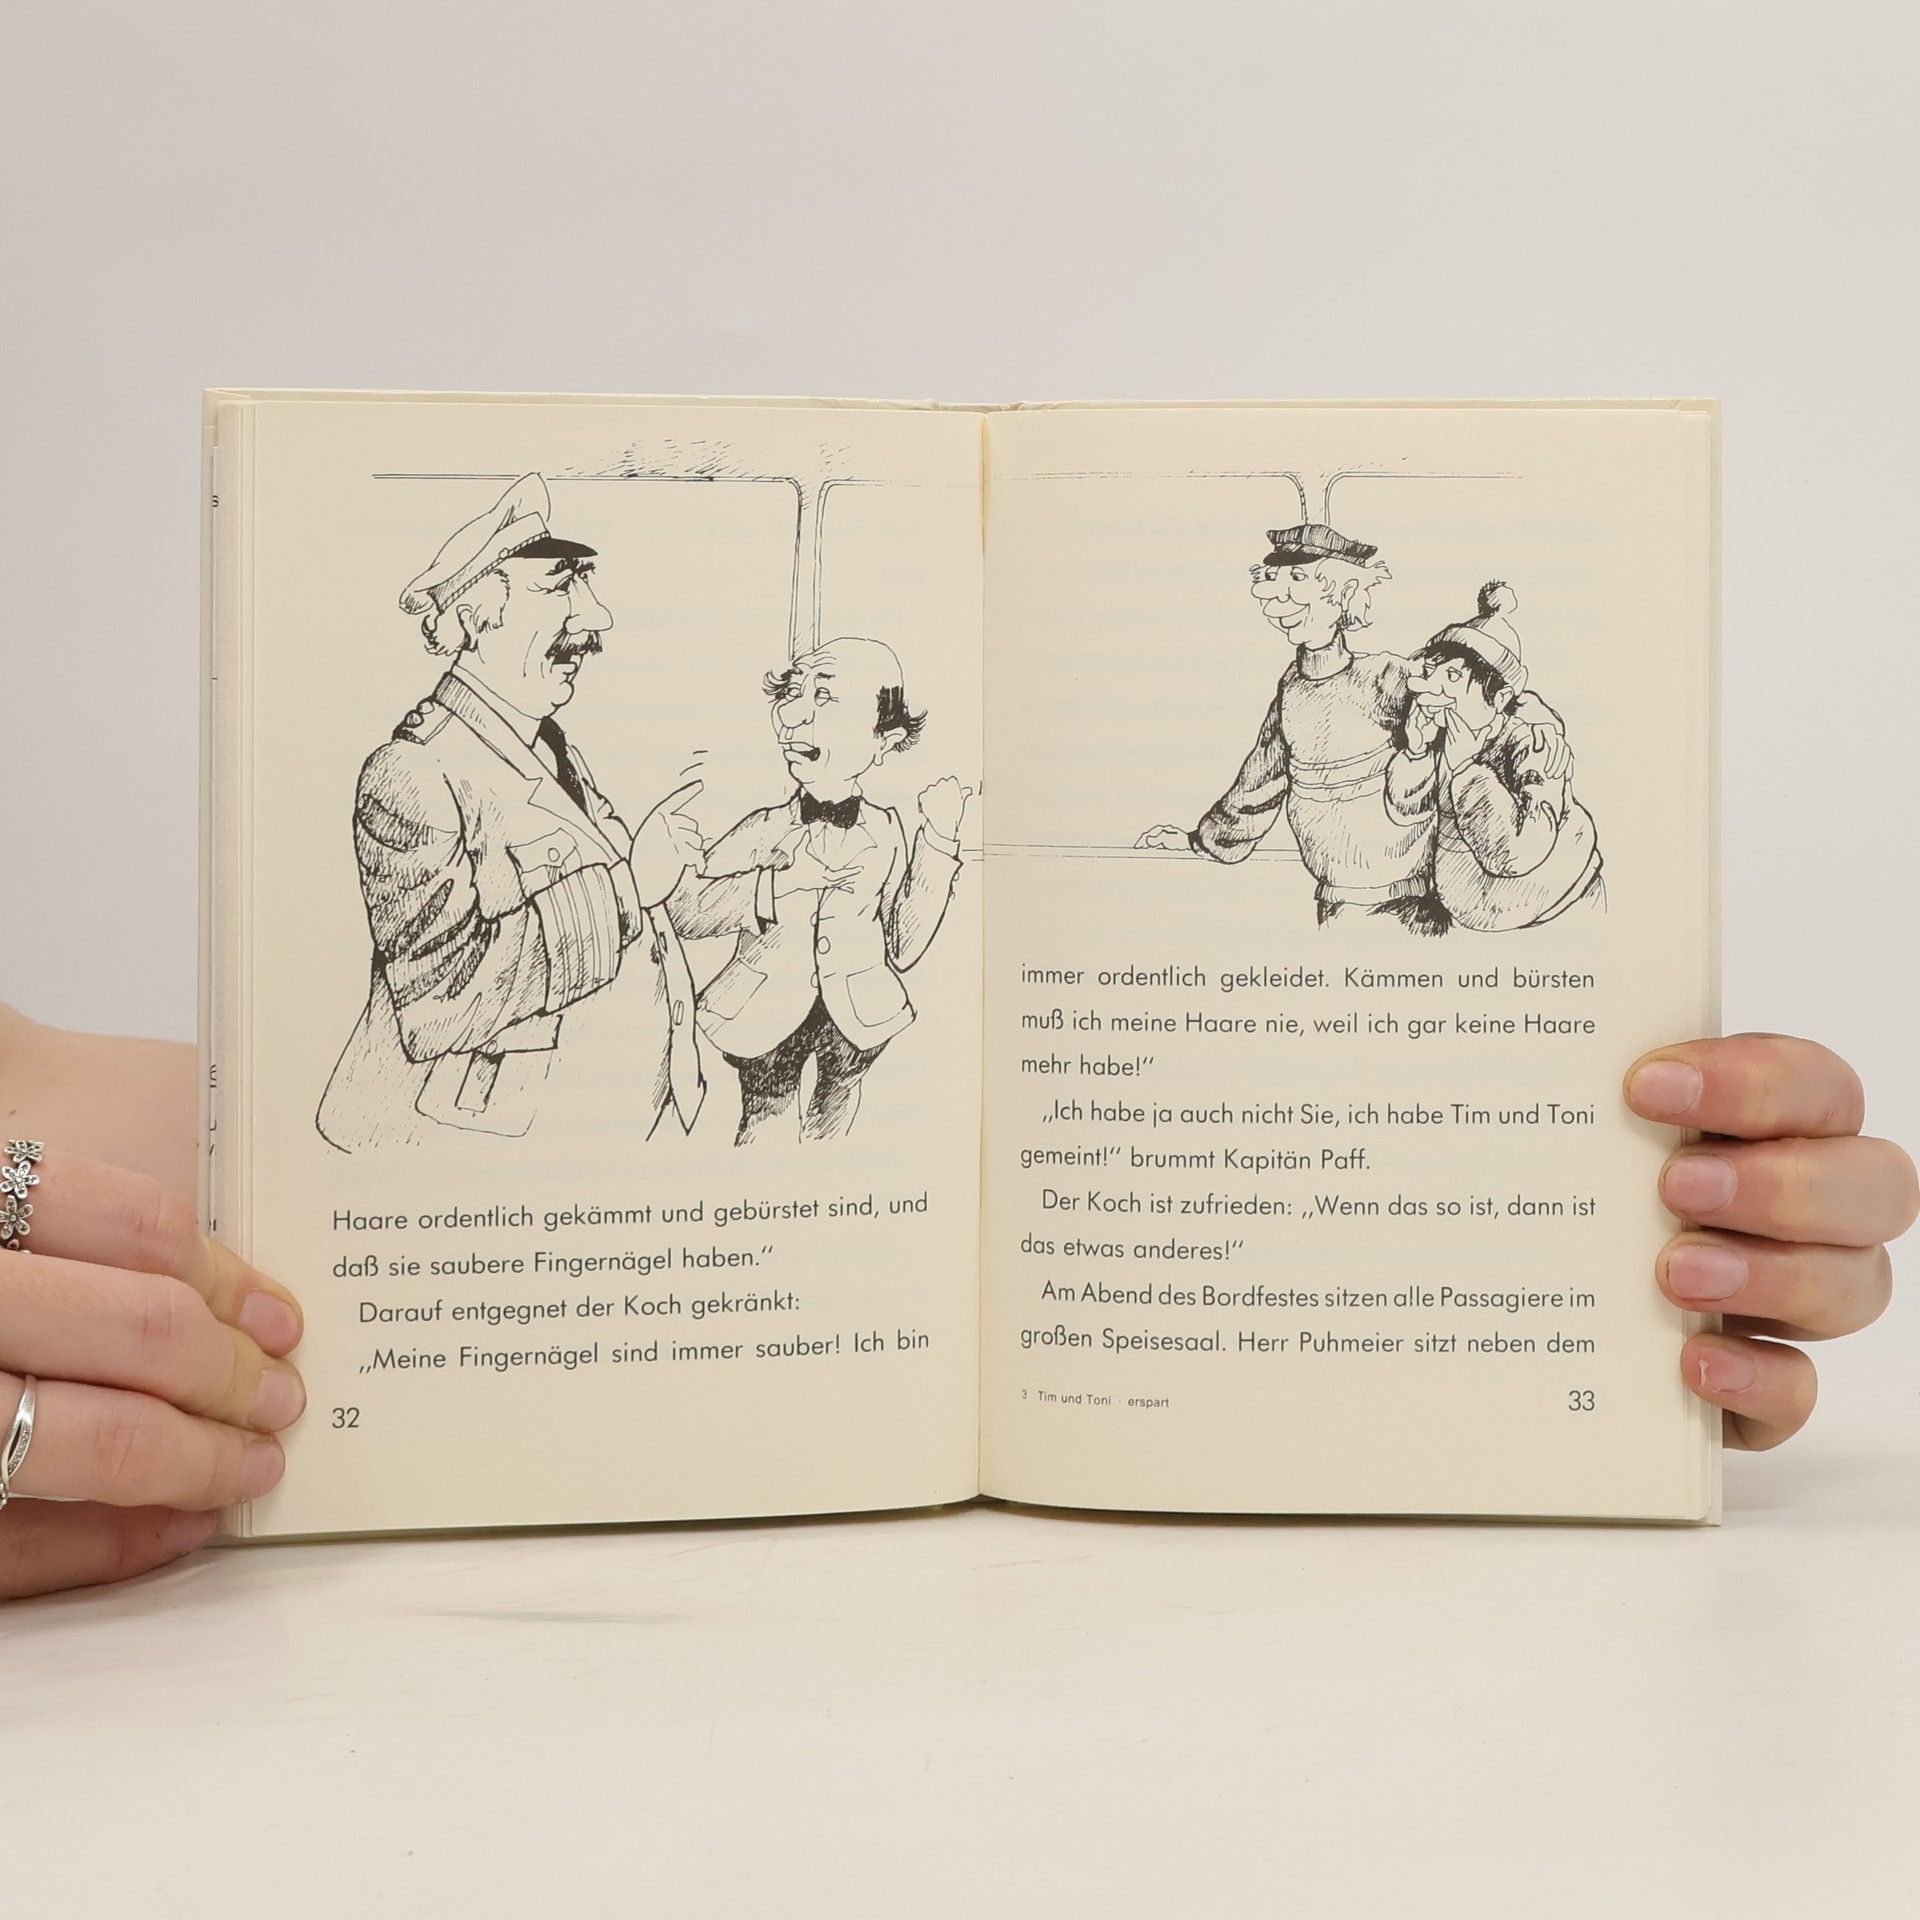 Haare ordentlich gekämmt und gebürstet sind, und
daß sie saubere Fingernägel haben.“
Darauf entgegnet der Koch gekränkt:
„Meine Fingernägel sind immer sauber! Ich bin
32
immer ordentlich gekleidet. Kämmen und bürsten
muß ich meine Haare nie, weil ich gar keine Haare
mehr habe!“
„Ich habe ja auch nicht Sie, ich habe Tim und Toni
gemeint!“ brummt Kapitän Paff.
Der Koch ist zufrieden: „Wenn das so ist, dann ist
das etwas anderes!“
Am Abend des Bordfestes sitzen alle Passagiere im
großen Speisesaal. Herr Puhmeier sitzt neben dem
3 Tim und Toni · erspart
33